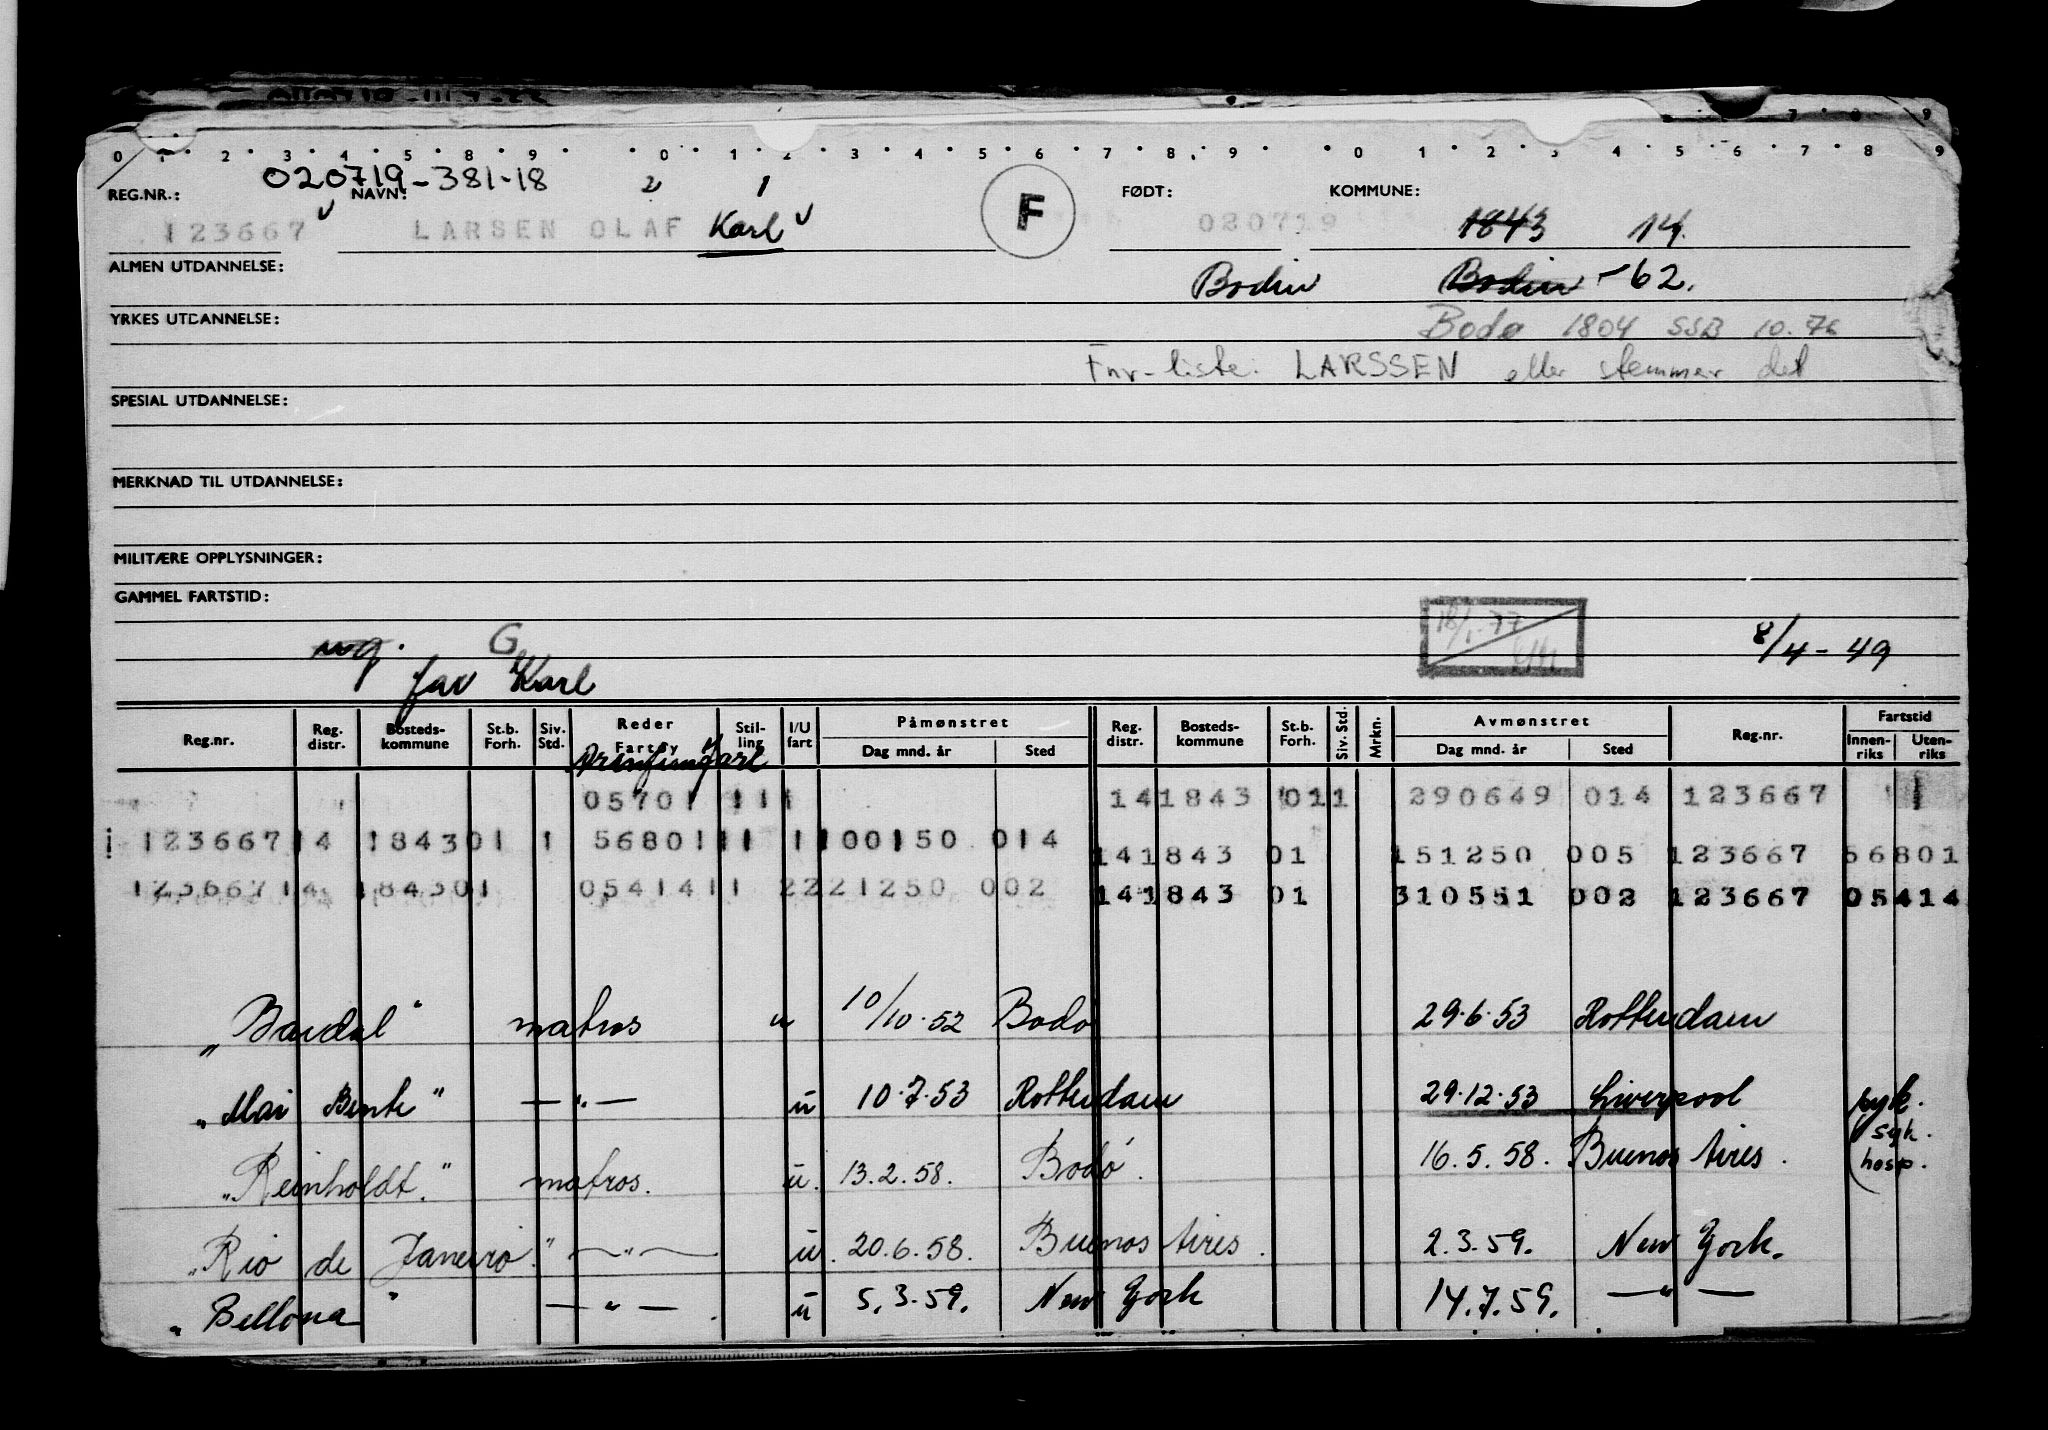 0 1 2 3 4 5 6 8 9 0 1 2 3 4 5 6 7 8 9 0 1 2 3 4 5 6 7 8 9
020719-381-18 2 1
REG.NR.: NAVN: FØDT: KOMMUNE:
123667 LARSEN OLAF Karl F 020719 1843 14.
ALMEN UTDANNELSE: Bodin Bodin -62.
YRKES UTDANNELSE: Bodø 1804 SSB 10.76
Fnr-liste: LARSSEN eller stemmer det
SPESIAL UTDANNELSE:
MERKNAD TIL UTDANNELSE:
MILITÆRE OPPLYSNINGER:
GAMMEL FARTSTID:
ug. G 18/1.77 8/4-49
far Karl
Reg.nr. Reg. distr. Bosteds-kommune St.b. Forh. Siv. Std. Reder Fartøy Stil-ling I/U fart Påmønstret Dag mnd. år Sted Reg. distr. Bosteds-kommune St.b. Forh. Siv. Std. Mrkn. Avmønstret Dag mnd. år Sted Reg.nr. Fartstid Innen-riks Uten-riks
05701 111 141843 011 290649 014 123667 1
123667 14 184301 1 56801 11 1 100150 014 141843 01 151250 005 123667 56801
123667 14 184301 05414 11 2 221250 002 141843 01 310551 002 123667 05414
"Bardal" matros u 10/10.52 Bodø 29.6.53 Rotterdam
"Mai Bente" —"— u 10.7.53 Rotterdam 29.12.53 Liverpool syk.
"Reinholdt." matros. u. 13.2.58. Bodø. 16.5.58. Buenos Aires. syk. hosp.
"Rio de Janeiro." —"— u. 20.6.58. Buenos Aires. 2.3.59. New York.
"Bellona" —"— u 5.3.59. New York 14.7.59. —"—